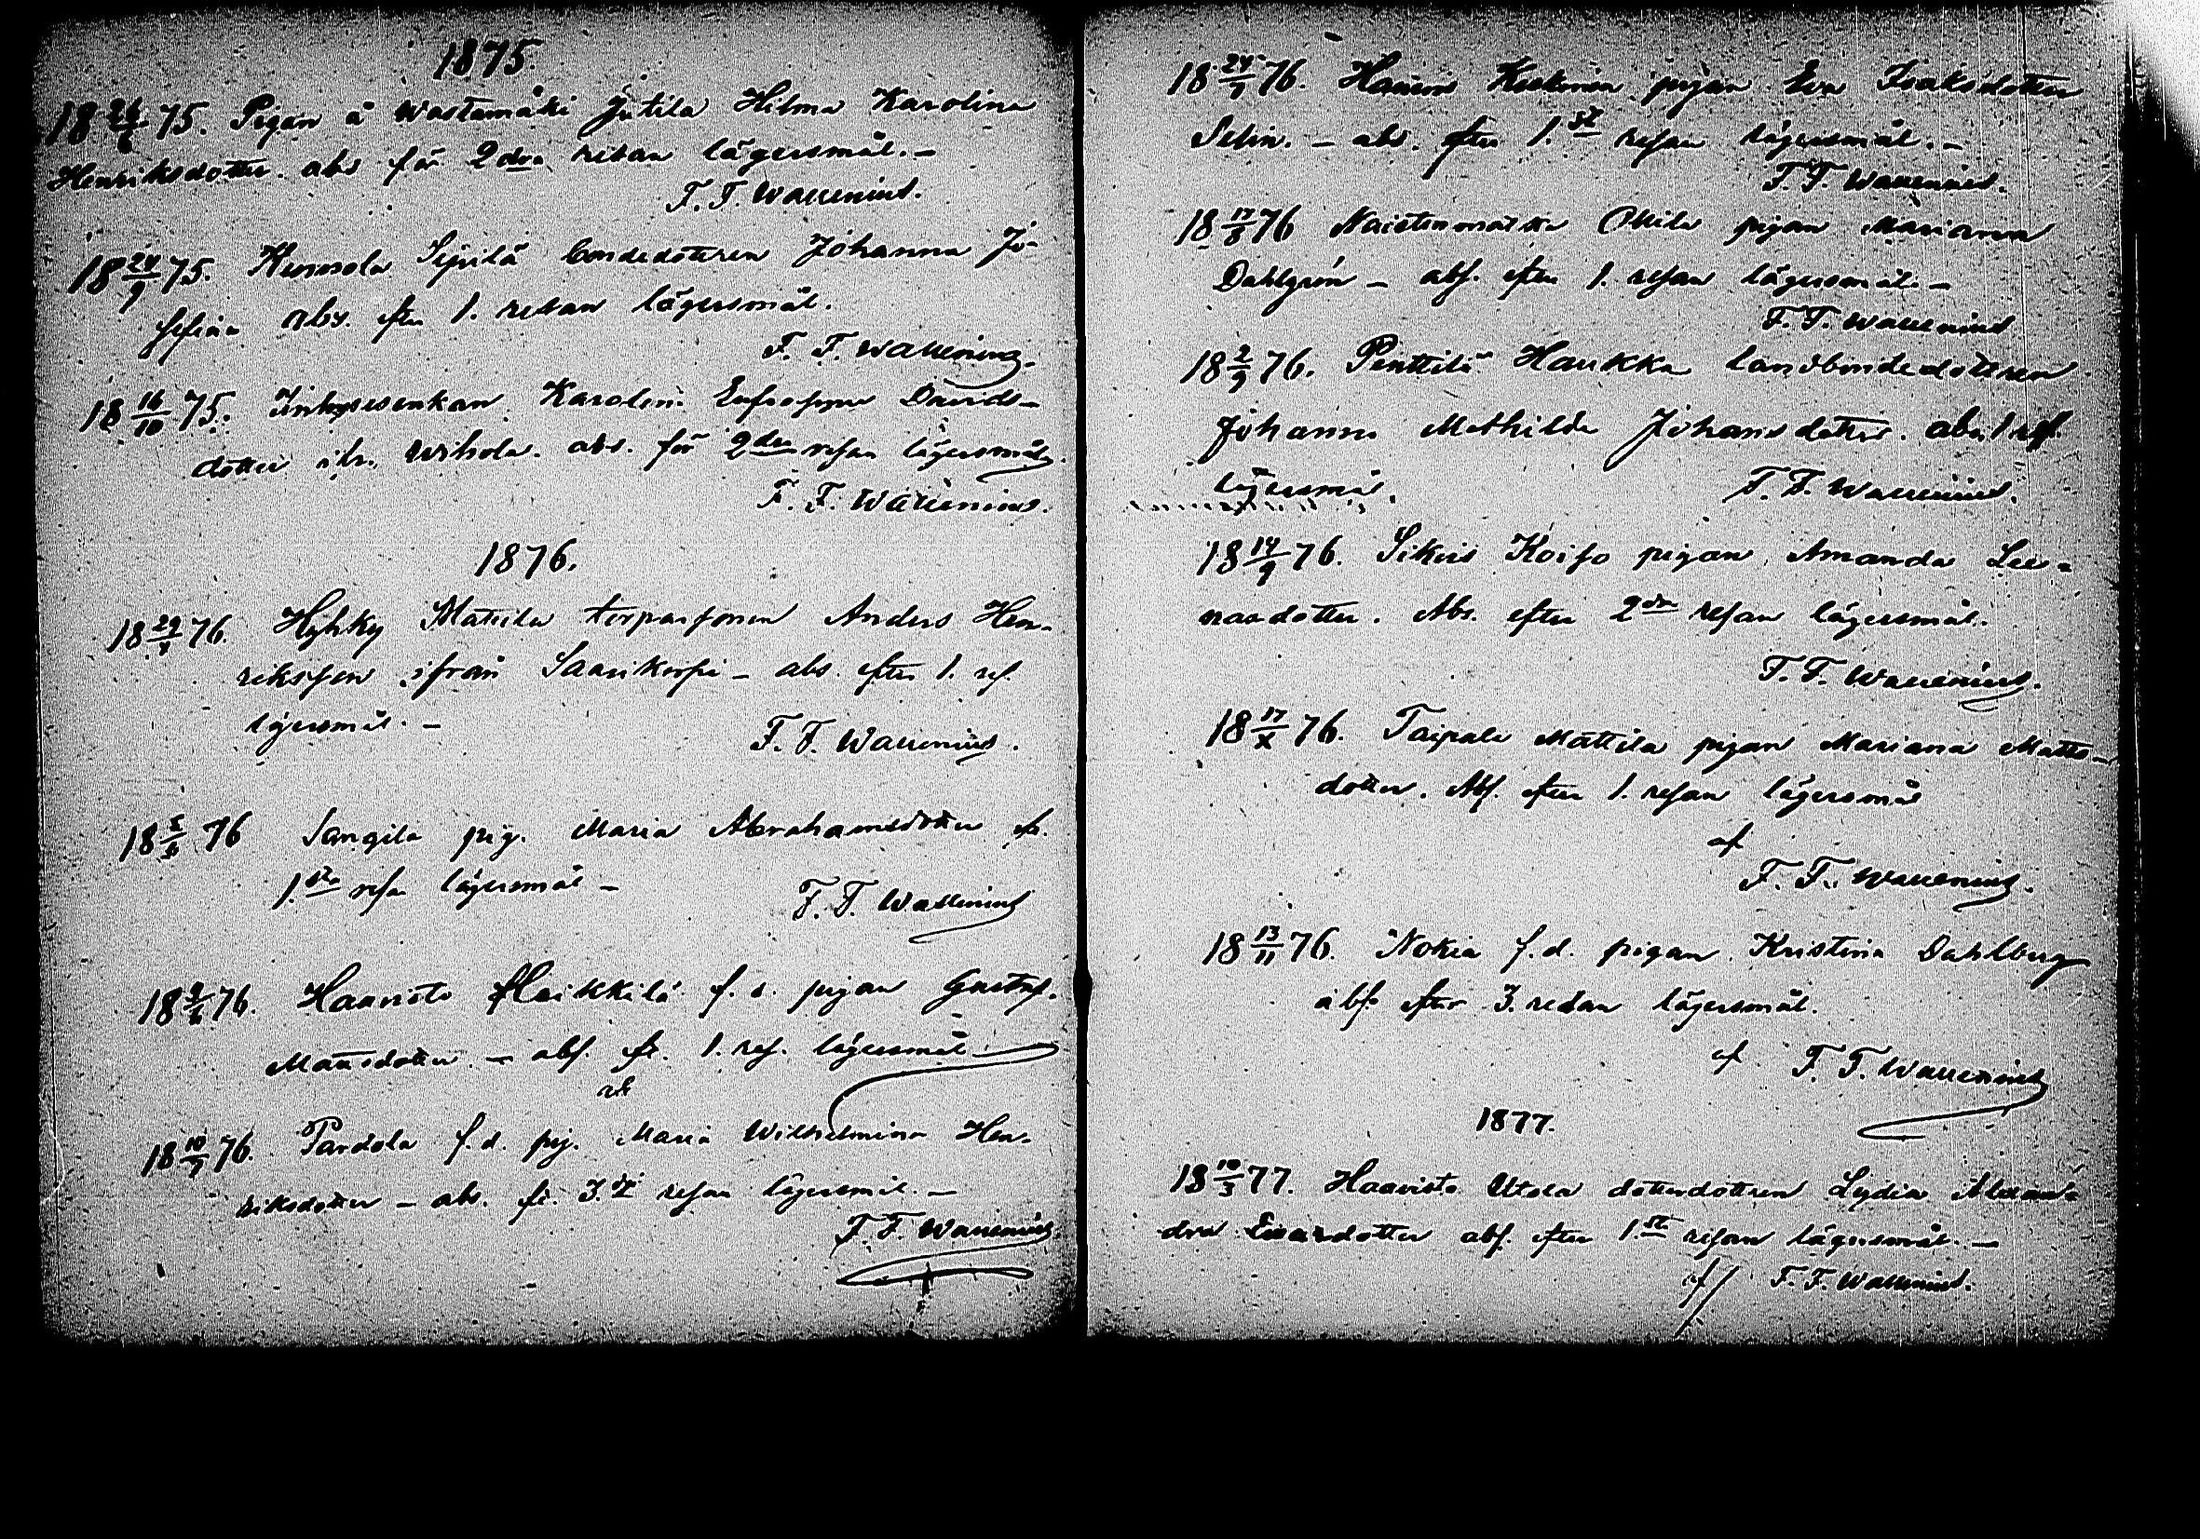 1875.
18 24/6 75. Pigan å Wastamäki Jutila Hilma Karolina
Henriksdotter. abs för 2dra resan lägersmål. –
F. F. Wallenius.
18 24/9 75. Kunsola Sipilä bondedottren Johanna Jo-
sefina abs. efter 1. resan lägersmål.
F. F. Wallenius.
18 16/10 75. Inhysesenkan Karolin. Eufrosyne Davids-
dotter abs. för 2dra resan lägersmål.
F. F. Wallenius.
1876.
18 29/1 76. Hyhky Mattila torparsonen Anders Hen-
riksson ifrån Saarikorpi – abs. efter 1. res.
lägersmål. –
F. F. Wallenius.
18 76 Sangila pig. Maria Abrahamsdotter ef.
1.sta resa lägersmål –
F. F. Wallenius
18 76. Haavisto Heikkilä f. d. pigan Gustaf.
Mattsdotter – abs. ef. 1. res. lägersmål
18 10/7 76. Pardola f. d. pig. Maria Wilhelmina Hen-
riksdotter – abs. ef. 3. resan lägersmål. –
F. F. Wallenius
18 24/7 76. pigan Eva Isaksdotter
– abs. efter 1.st resan lägersmål. –
F. F. Wallenius.
18 17/8 76 Naistenmatka Ollila pigan Marianna
Dahlgrén – abs. efter 1. resan lägersmål. –
F. F. Wallenius
18 2/9 76. Penttilä Haukka landbondedottren
Johanna Mathilda Johansdotter. abs. 1 res.
lägersmål.
F. F. Wallenius.
18 14/9 76. Sikuri Koiso pigan Amanda Lee-
nasdotter. Abs. efter 2dra resan lägersmål.
F. F. Wallenius.
18 17/X 76. Taipale Mattila pigan Mariana Matts-
dotter. Abs. efter 1. resan lägersmål
af
F. F. Wallenius.
18 13/11 76. Nokia f. d. pigan Kristina Dahlberg
abs. efter 3. resan lägersmål.
af F. F. Wallenius
1877.
18 10/3 77. Haavisto Utola dotterdottren Lydia Alexan-
dra Enarsdotter abs. efter 1.st resan lägersmål. –
af F. F. Wallenius.